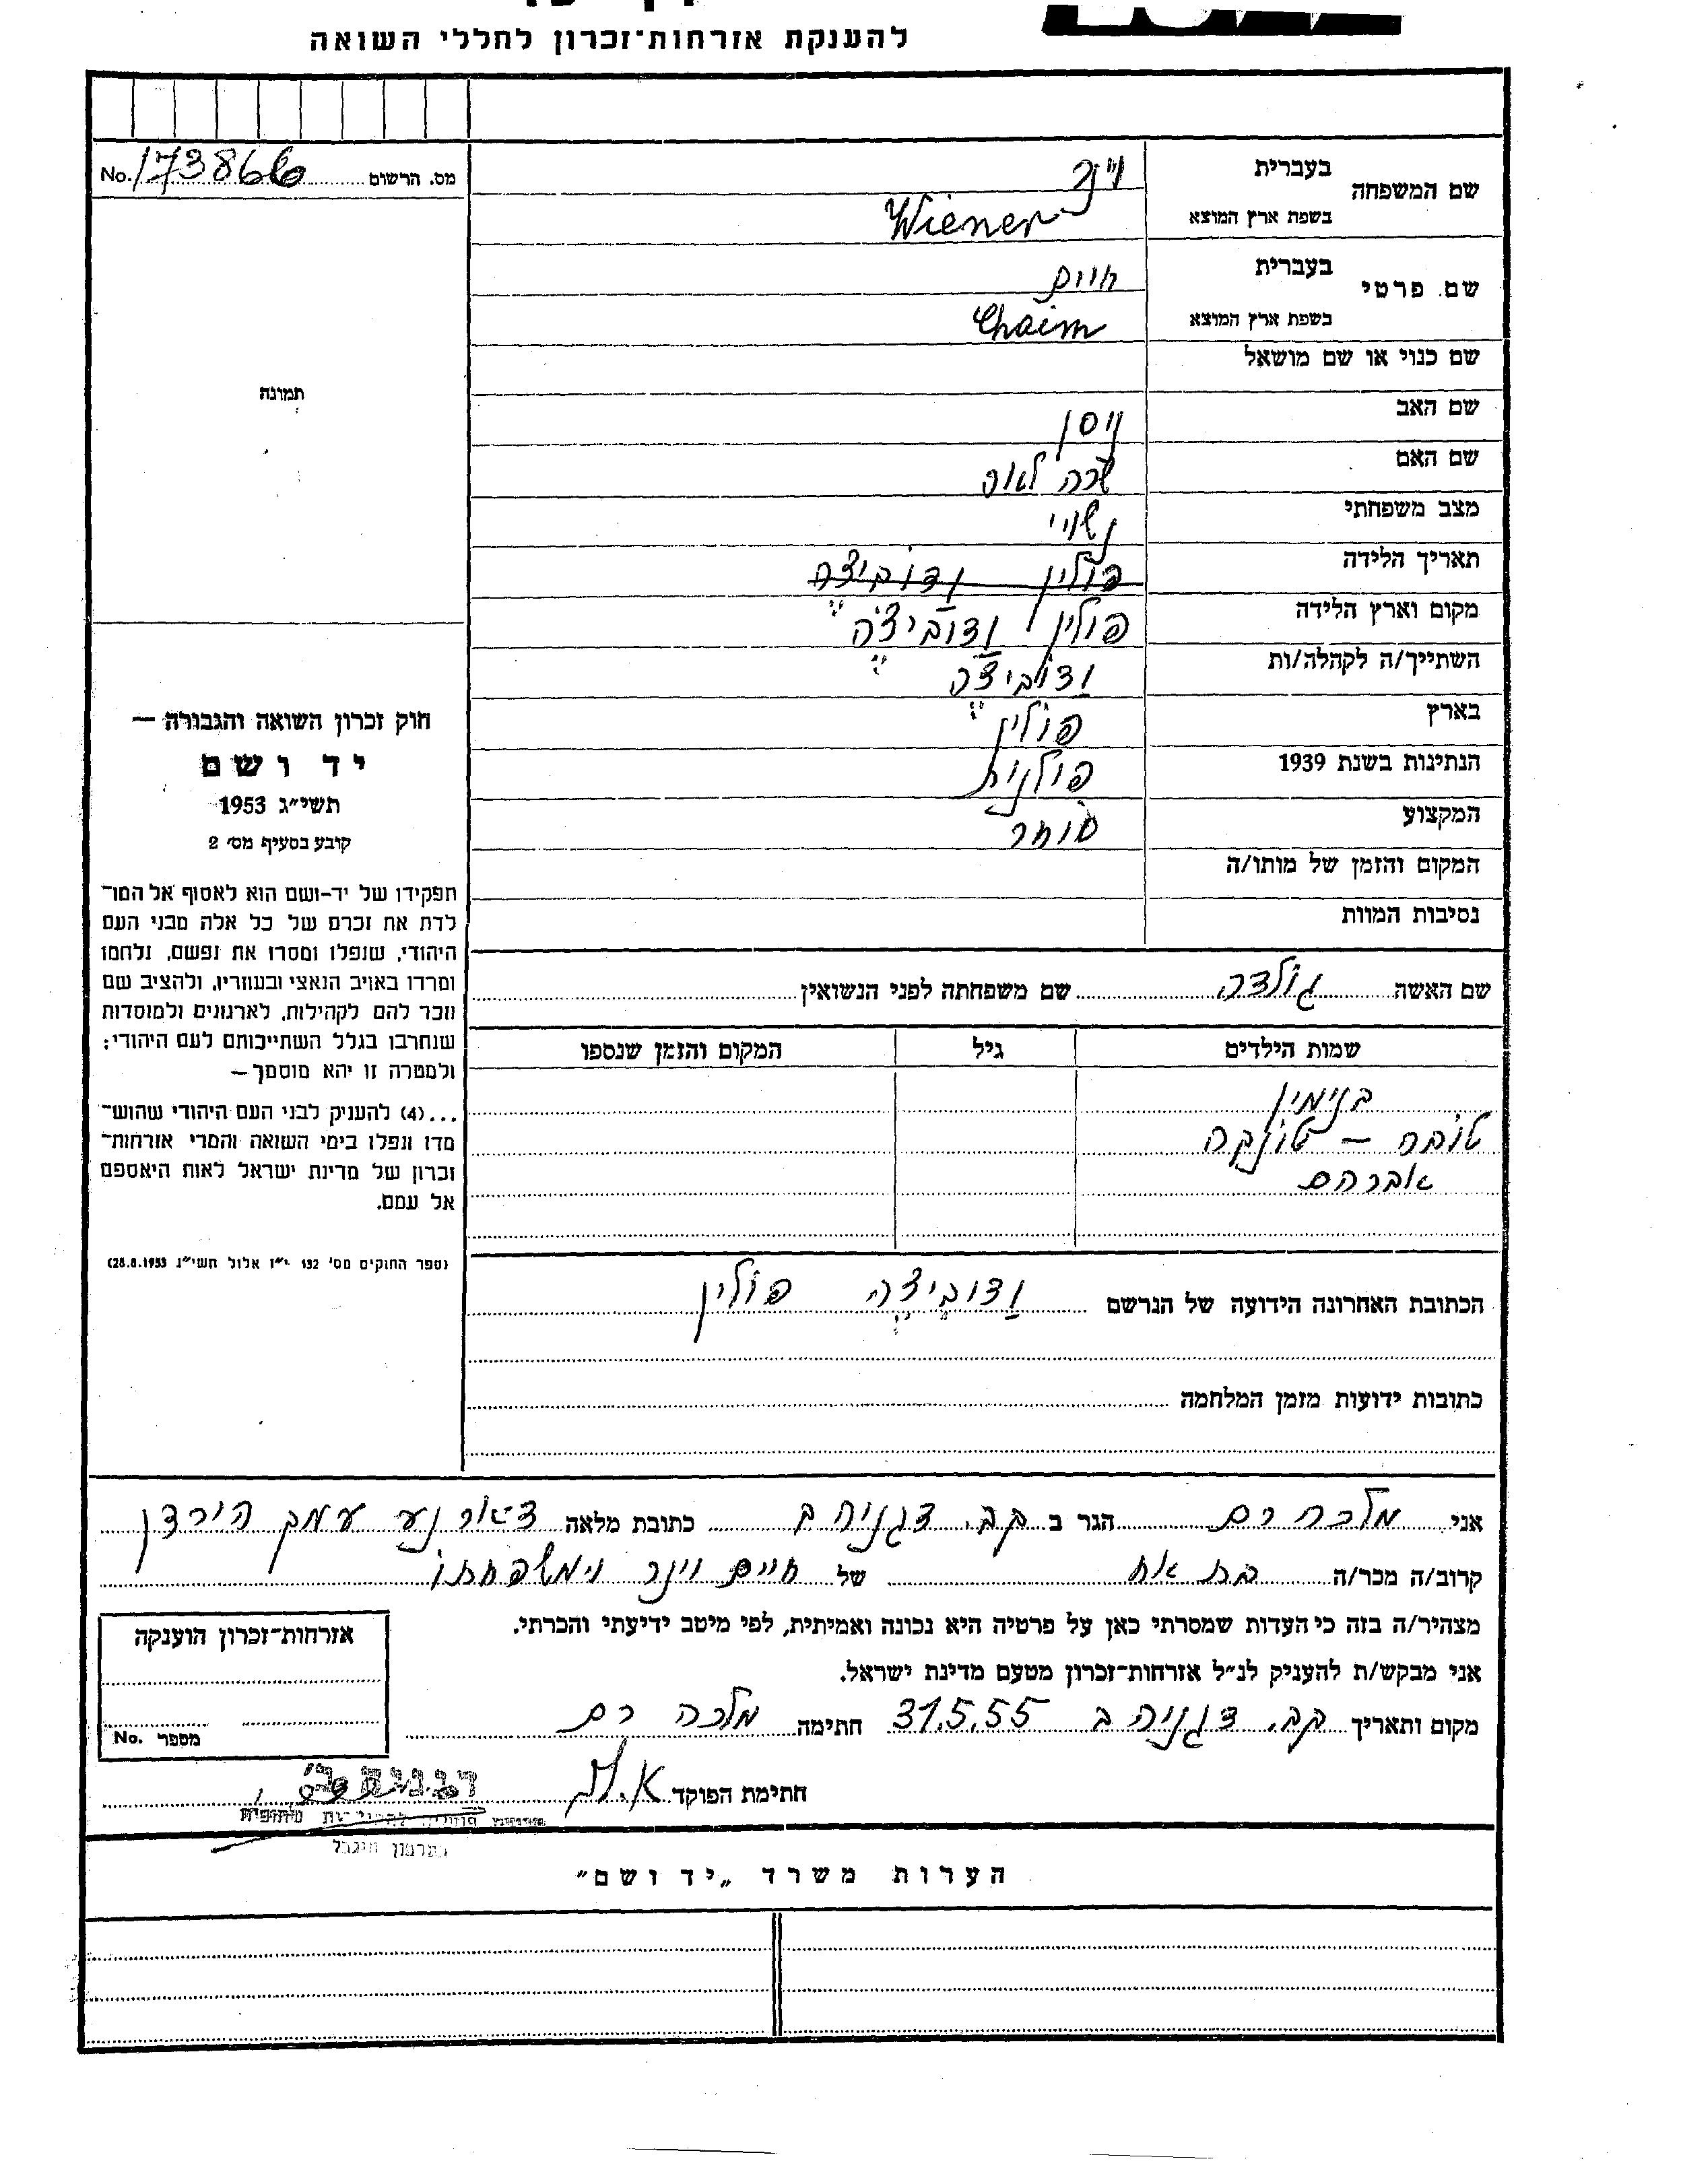 להענקת אזרחות־זכרון לחללי השואה
מס. הרשום 173866 No.
שם המשפחה בעברית וינר
בשפת ארץ המוצא Wiener
שם פרטי בעברית חיים
בשפת ארץ המוצא Chaim
שם כנוי או שם מושאל
שם האב ניסן
שם האם שרה לאה
מצב משפחתי נשוי
תאריך הלידה
מקום וארץ הלידה פולין ודוביצה
השתייך/ה לקהלה/ות ודוביצה
בארץ פולין
הנתינות בשנת 1939 פולנית
המקצוע סוחר
המקום והזמן של מותו/ה
נסיבות המוות
תמונה
חוק זכרון השואה והגבורה —
יד ושם
תשי״ג 1953
קובע בסעיף מס׳ 2
תפקידו של יד-ושם הוא לאסוף אל המו־
לדת את זכרם של כל אלה מבני העם
היהודי, שנפלו ומסרו את נפשם, נלחמו
ומרדו באויב הנאצי ובעוזריו, ולהציב שם
וזכר להם לקהילות, לארגונים ולמוסדות
שנחרבו בגלל השתייכותם לעם היהודי;
ולמטרה זו יהא מוסמך—
...(4) להעניק לבני העם היהודי שהוש־
מדו ונפלו בימי השואה והמרי אזרחות־
זכרון של מדינת ישראל לאות היאספם
אל עמם.
(ספר החוקים מס׳ 132 י״ז אלול תשי״ג 28.8.1953)
שם האשה גולדה שם משפחתה לפני הנשואין
שמות הילדים גיל המקום והזמן שנספו
בנימין
טובה — טונקה
אברהם
הכתובת האחרונה הידועה של הנרשם ודוביצה פולין
כתובות ידועות מזמן המלחמה
אני מלכה רם הגר ב קב. דגניה ב כתובת מלאה דאר נע עמק הירדן
קרוב/ה מכר/ה בת אח של חיים וינר ומשפחתו
מצהיר/ה בזה כי העדות שמסרתי כאן על פרטיה היא נכונה ואמיתית, לפי מיטב ידיעתי והכרתי.
אני מבקש/ת להעניק לנ״ל אזרחות־זכרון מטעם מדינת ישראל.
מקום ותאריך קב. דגניה ב 31.5.55 חתימה מלכה רם
חתימת הפוקד
אזרחות־זכרון הוענקה
מספר No.
הערות משרד „יד ושם״